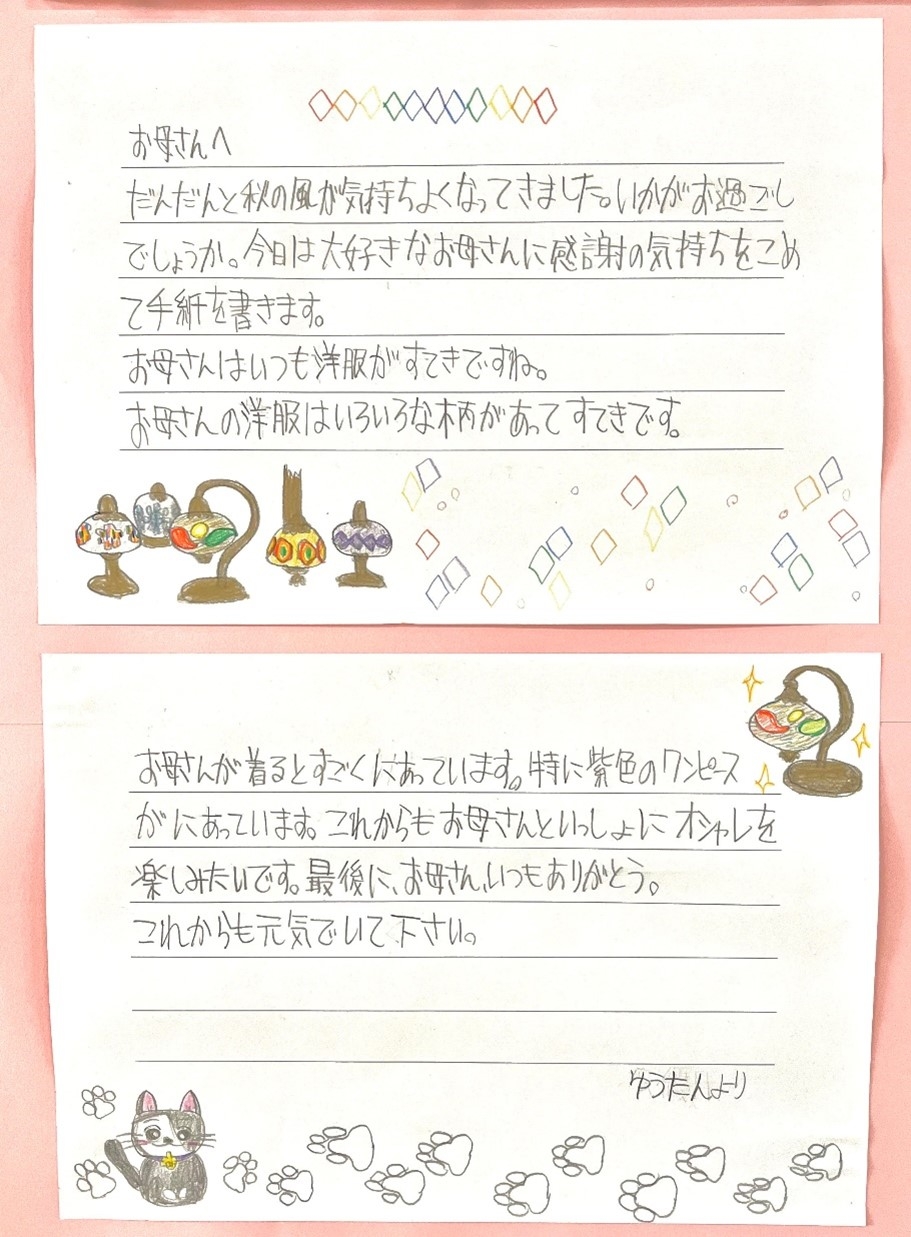 お母さんへ
だんだんと秋の風が気持ちよくなってきました。いかがお過ごし
でしょうか。今日は大好きなお母さんに感謝の気持ちをこめ
て手紙を書きます。
お母さんはいつも洋服がすてきですね。
お母さんの洋服はいろいろな柄があってすてきです。
お母さんが着るとすごくにあっています。特に紫色のワンピース
がにあっています。これからもお母さんといっしょにオシャレを
楽しみたいです。最後に、お母さん、いつもありがとう。
これからも元気でいて下さい。
ゆうたんより